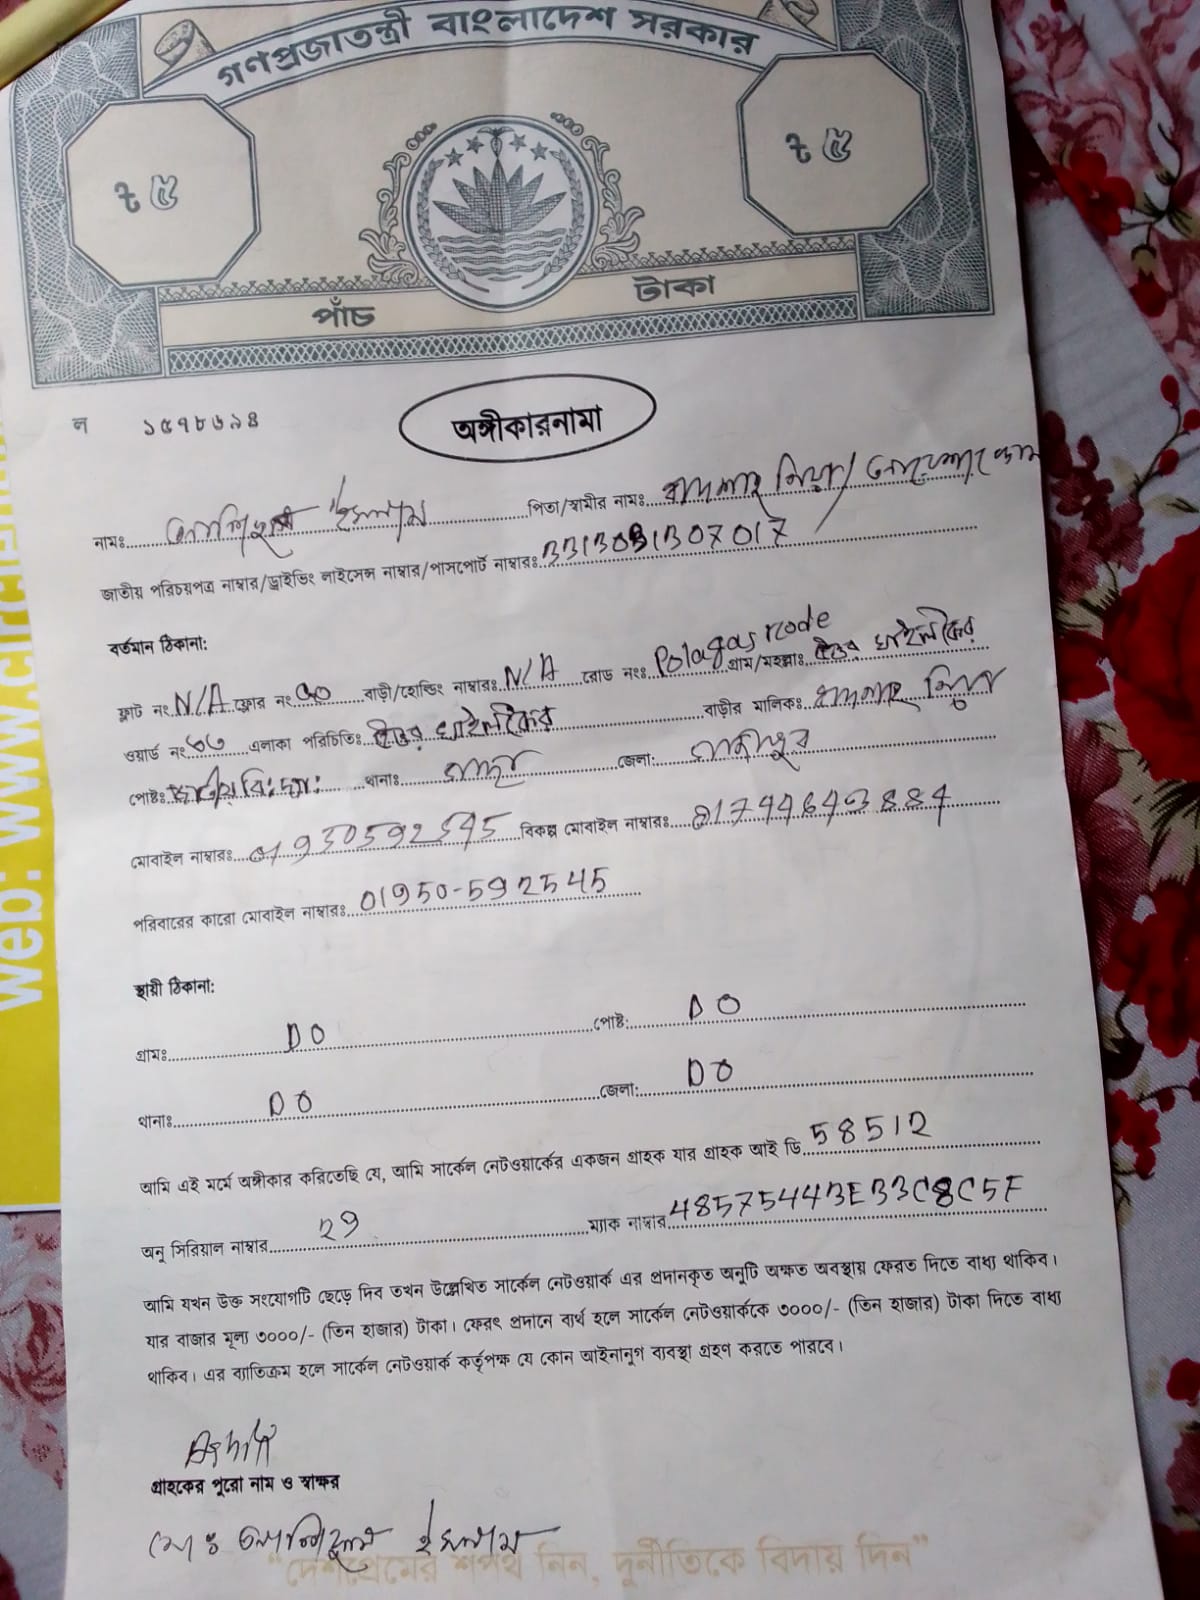 গণপ্রজাতন্ত্রী বাংলাদেশ সরকার
ট ৫
ট ৫
পাঁচ টাকা
ন ১৫৭৮৬৯৪
অঙ্গীকারনামা
নামঃ ইসলাম পিতা/স্বামীর নামঃ মিয়া/
জাতীয় পরিচয়পত্র নাম্বার/ড্রাইভিং লাইসেন্স নাম্বার/পাসপোর্ট নাম্বারঃ
বর্তমান ঠিকানা:
ফ্লাট নং N/A ফ্লোর নং বাড়ী/হোল্ডিং নাম্বারঃ N/A রোড নংঃ Polagas rode গ্রাম/মহল্লাঃ
ওয়ার্ড নং এলাকা পরিচিতিঃ বাড়ীর মালিকঃ
পোষ্টঃ থানাঃ জেলা: গাজীপুর
মোবাইল নাম্বারঃ বিকল্প মোবাইল নাম্বারঃ
পরিবারের কারো মোবাইল নাম্বারঃ 01950-592545
স্থায়ী ঠিকানা:
গ্রামঃ DO পোষ্ট: DO
থানাঃ DO জেলা: DO
আমি এই মর্মে অঙ্গীকার করিতেছি যে, আমি সার্কেল নেটওয়ার্কের একজন গ্রাহক যার গ্রাহক আই ডি 58512
অনু সিরিয়াল নাম্বার 29 ম্যাক নাম্বার 48575443EB3C8C5F
আমি যখন উক্ত সংযোগটি ছেড়ে দিব তখন উল্লেখিত সার্কেল নেটওয়ার্ক এর প্রদানকৃত অনুটি অক্ষত অবস্থায় ফেরত দিতে বাধ্য থাকিব।
যার বাজার মূল্য ৩০০০/- (তিন হাজার) টাকা। ফেরৎ প্রদানে ব্যর্থ হলে সার্কেল নেটওয়ার্ককে ৩০০০/- (তিন হাজার) টাকা দিতে বাধ্য
থাকিব। এর ব্যতিক্রম হলে সার্কেল নেটওয়ার্ক কর্তৃপক্ষ যে কোন আইনানুগ ব্যবস্থা গ্রহণ করতে পারবে।
গ্রাহকের পুরো নাম ও স্বাক্ষর
মোঃ ইসলাম
"দেশপ্রেমের শপথ নিন, দুর্নীতিকে বিদায় দিন"